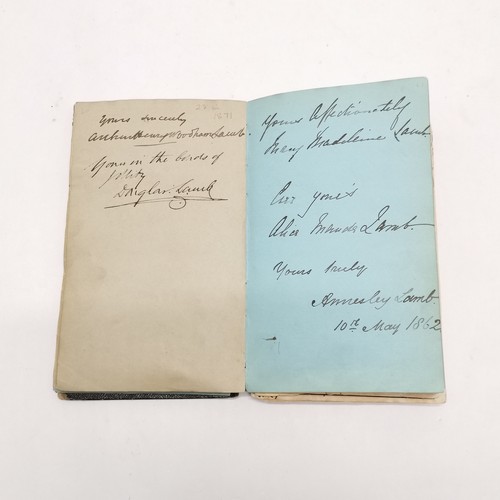 Yours sincerely
Arthur Henry Woodham Lamb.
Yours in the bonds of
jollity
Douglas. Lamb
Yours Affectionately
Mary Madeleine Lamb.
Ever your's
Alice Maude Lamb.
Yours truly
Annesley Lamb.
10th May 1862